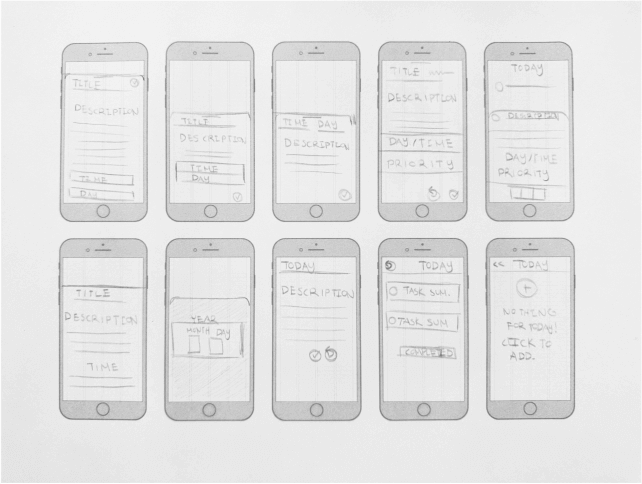 TITLE
DESCRIPTION
TIME
DAY
TITLE
DESCRIPTION
TIME
DAY
TIME DAY
DESCRIPTION
TITLE
DESCRIPTION
DAY/TIME
PRIORITY
TODAY
DESCRIPTION
DAY/TIME
PRIORITY
TITLE
DESCRIPTION
TIME
YEAR
MONTH DAY
TODAY
DESCRIPTION
TODAY
TASK SUM.
TASK SUM
COMPLETED
<< TODAY
+
NOTHING
FOR TODAY!
CLICK TO
ADD.